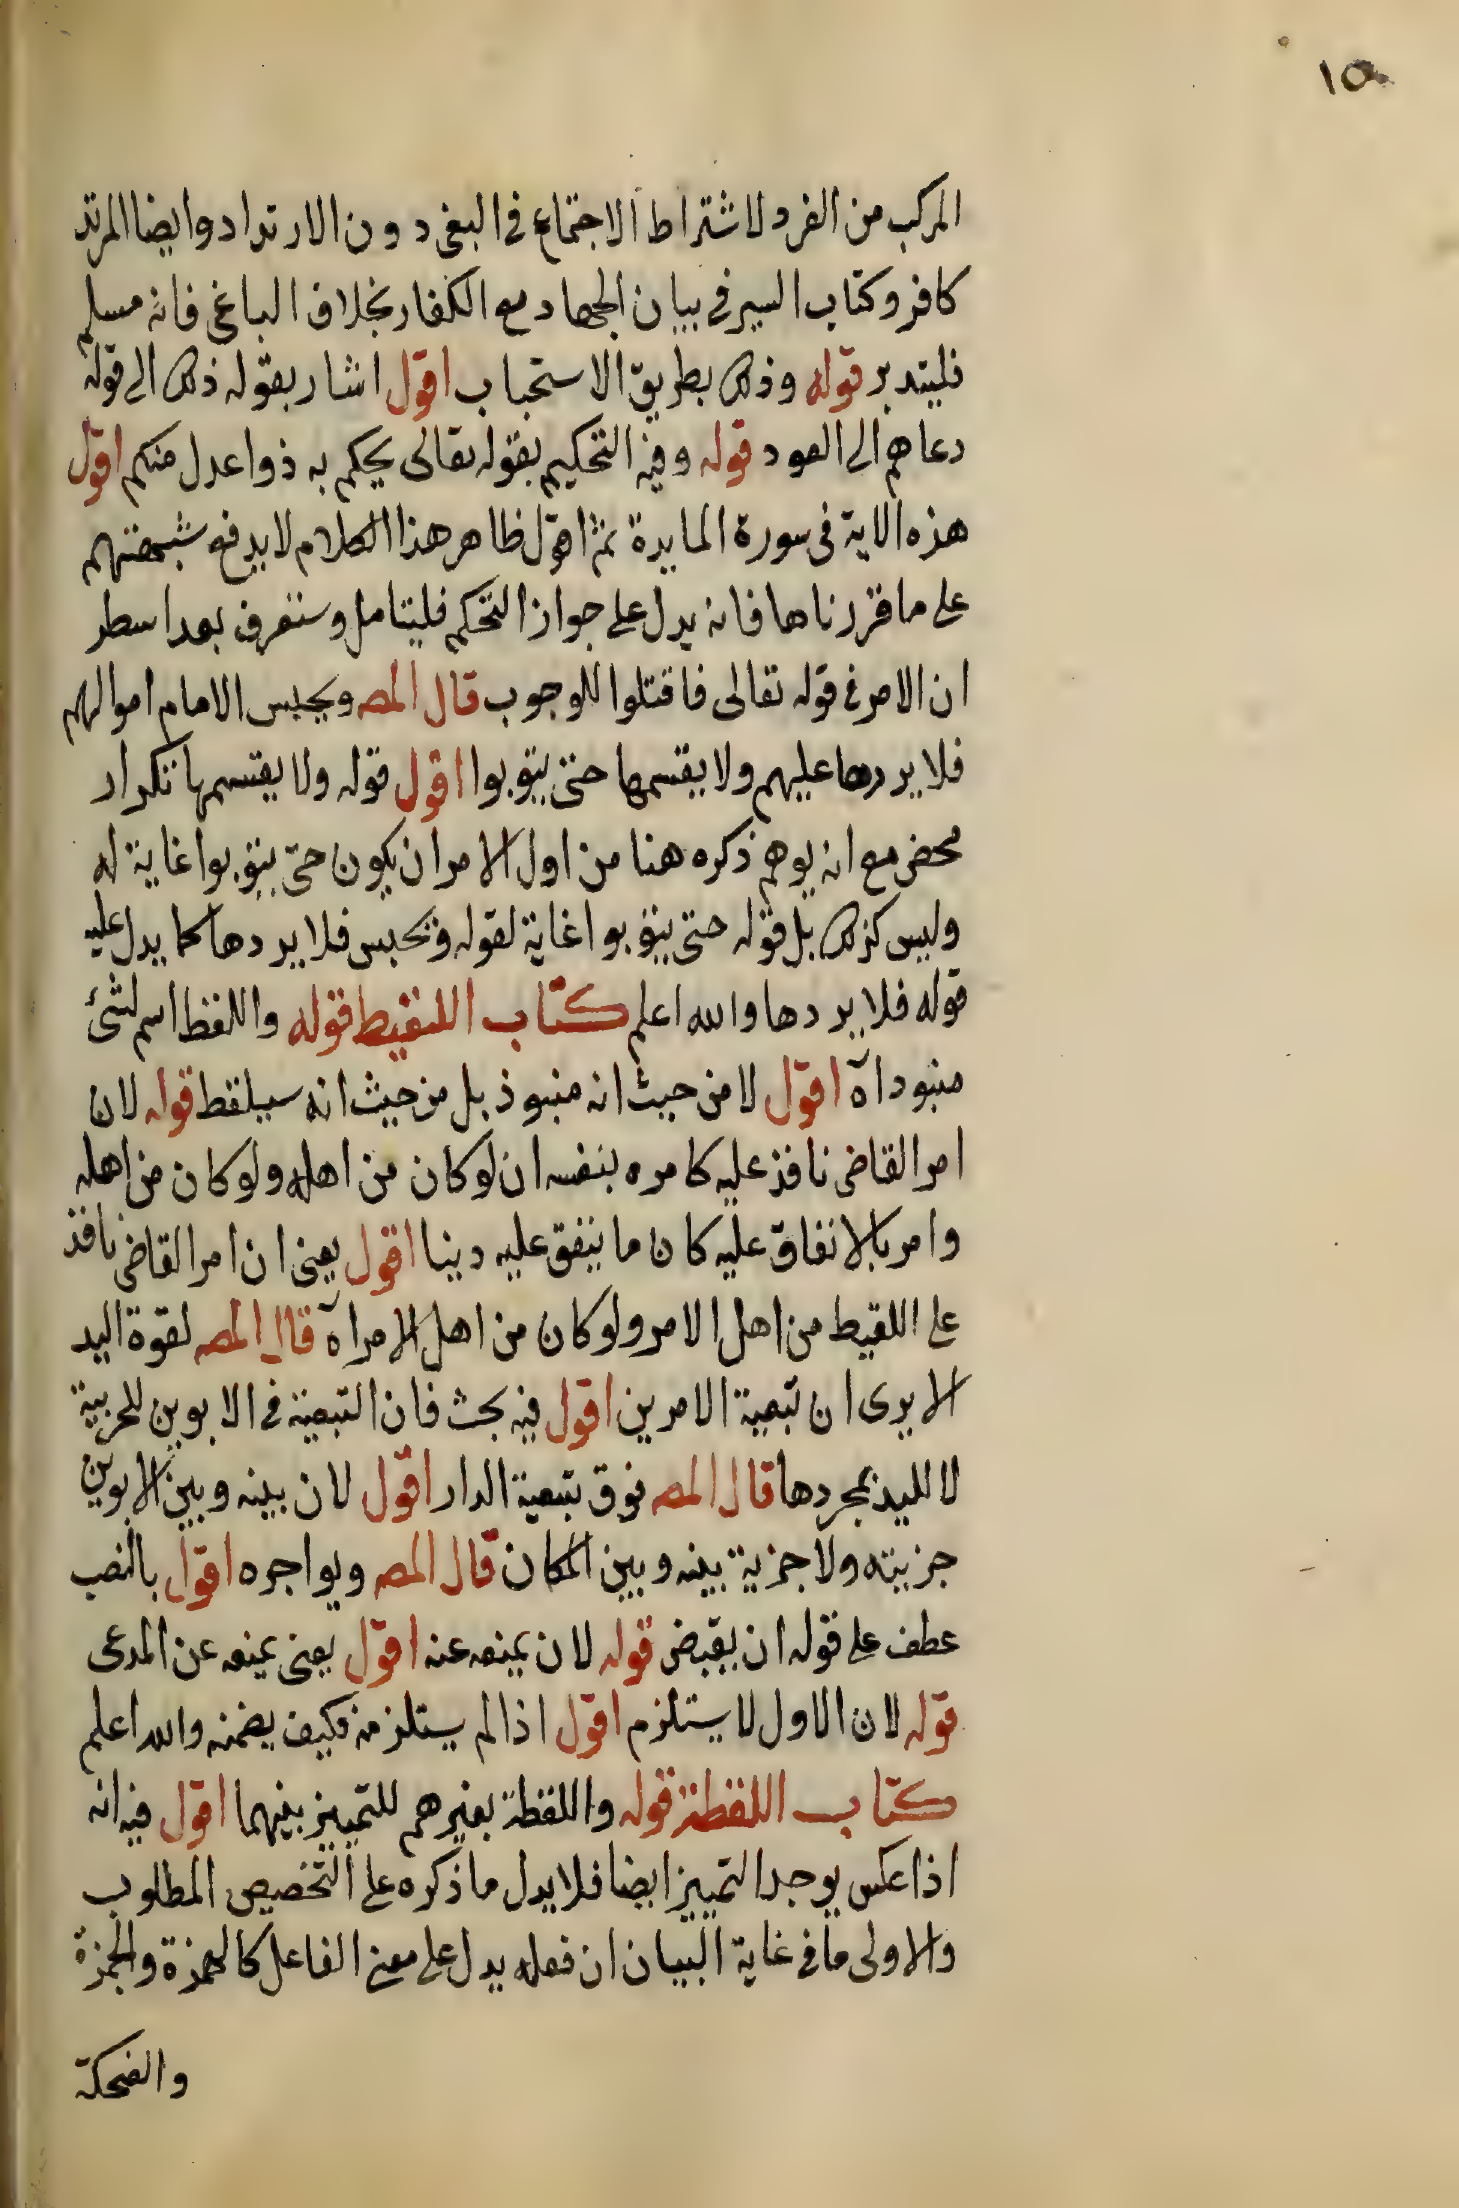 ١٥٠
المركب من الفرد لاشتراط الاجتماع في البغي دون الارتداد وايضا المرتد
كافر وكتاب السير في بيان الجهاد مع الكفار بخلاف الباغي فانه مسلم
فليتدبر قوله وذلك بطريق الاستحباب اقول اشار بقوله ذلك الى قوله
دعاهم الى العود قوله وفيه التحكيم بقوله تعالى يحكم به ذوا عدل منكم اقول
هذه الاية في سورة المايدة ثم اقول ظاهر هذا الكلام لا يدفع شبهتهم
على ما قررناها فانه يدل على جواز التحكم فليتامل وستعرف بعد اسطر
ان الامر في قوله تعالى فاقتلوا للوجوب قال المص ويحبس الامام اموالهم
فلا يردها عليهم ولا يقسمها حتى يتوبوا اقول قوله ولا يقسمها تكرار
محض مع انه يوهم ذكره هنا من اول الامر ان يكون حتى يتوبوا غاية له
وليس كذلك بل قوله حتى يتوبوا غاية لقوله وتحبس فلا يردها كما يدل عليه
قوله فلا يردها والله اعلم كتاب اللقيط قوله واللقط اسم لشئ
منبود اه اقول لا من حيث انه منبوذ بل من حيث انه سيلقط قوله لان
امر القاضي نافذ عليه كامره بنفسه ان لو كان من اهله ولو كان من اهله
وامر بالانفاق عليه كان ما ينفق عليه دينا اقول يعني ان امر القاضي نافذ
على اللقيط من اهل الامر ولو كان من اهل الامر اه قال المص لقوة اليد
الا يرى ان تبعية الامرين اقول فيه بحث فان التبعية في الابوين للحربية
لا لليد بمجردها قال المص فوق تبعية الدار اقول لان بينه وبين الابوين
جزيته ولا جزية بينه وبين المكان قال المص ويواجره اقول بالنصب
عطف على قوله ان يقبض قوله لان يمنعه عنه اقول يعني يمنعه عن المدعى
قوله لان الاول لا يستلزم اقول اذا لم يستلزمه فكيف يضمنه والله اعلم
كتاب اللقطة قوله واللقطة بغيرهم للتمييز بينهما اقول فيه انه
اذا عكس يوجد التمييز ايضا فلا يدل ما ذكره على التخصيص المطلوب
والاولى ما في غاية البيان ان فعله يدل على معنى الفاعل كالهمزة والجمزة
والضحكة